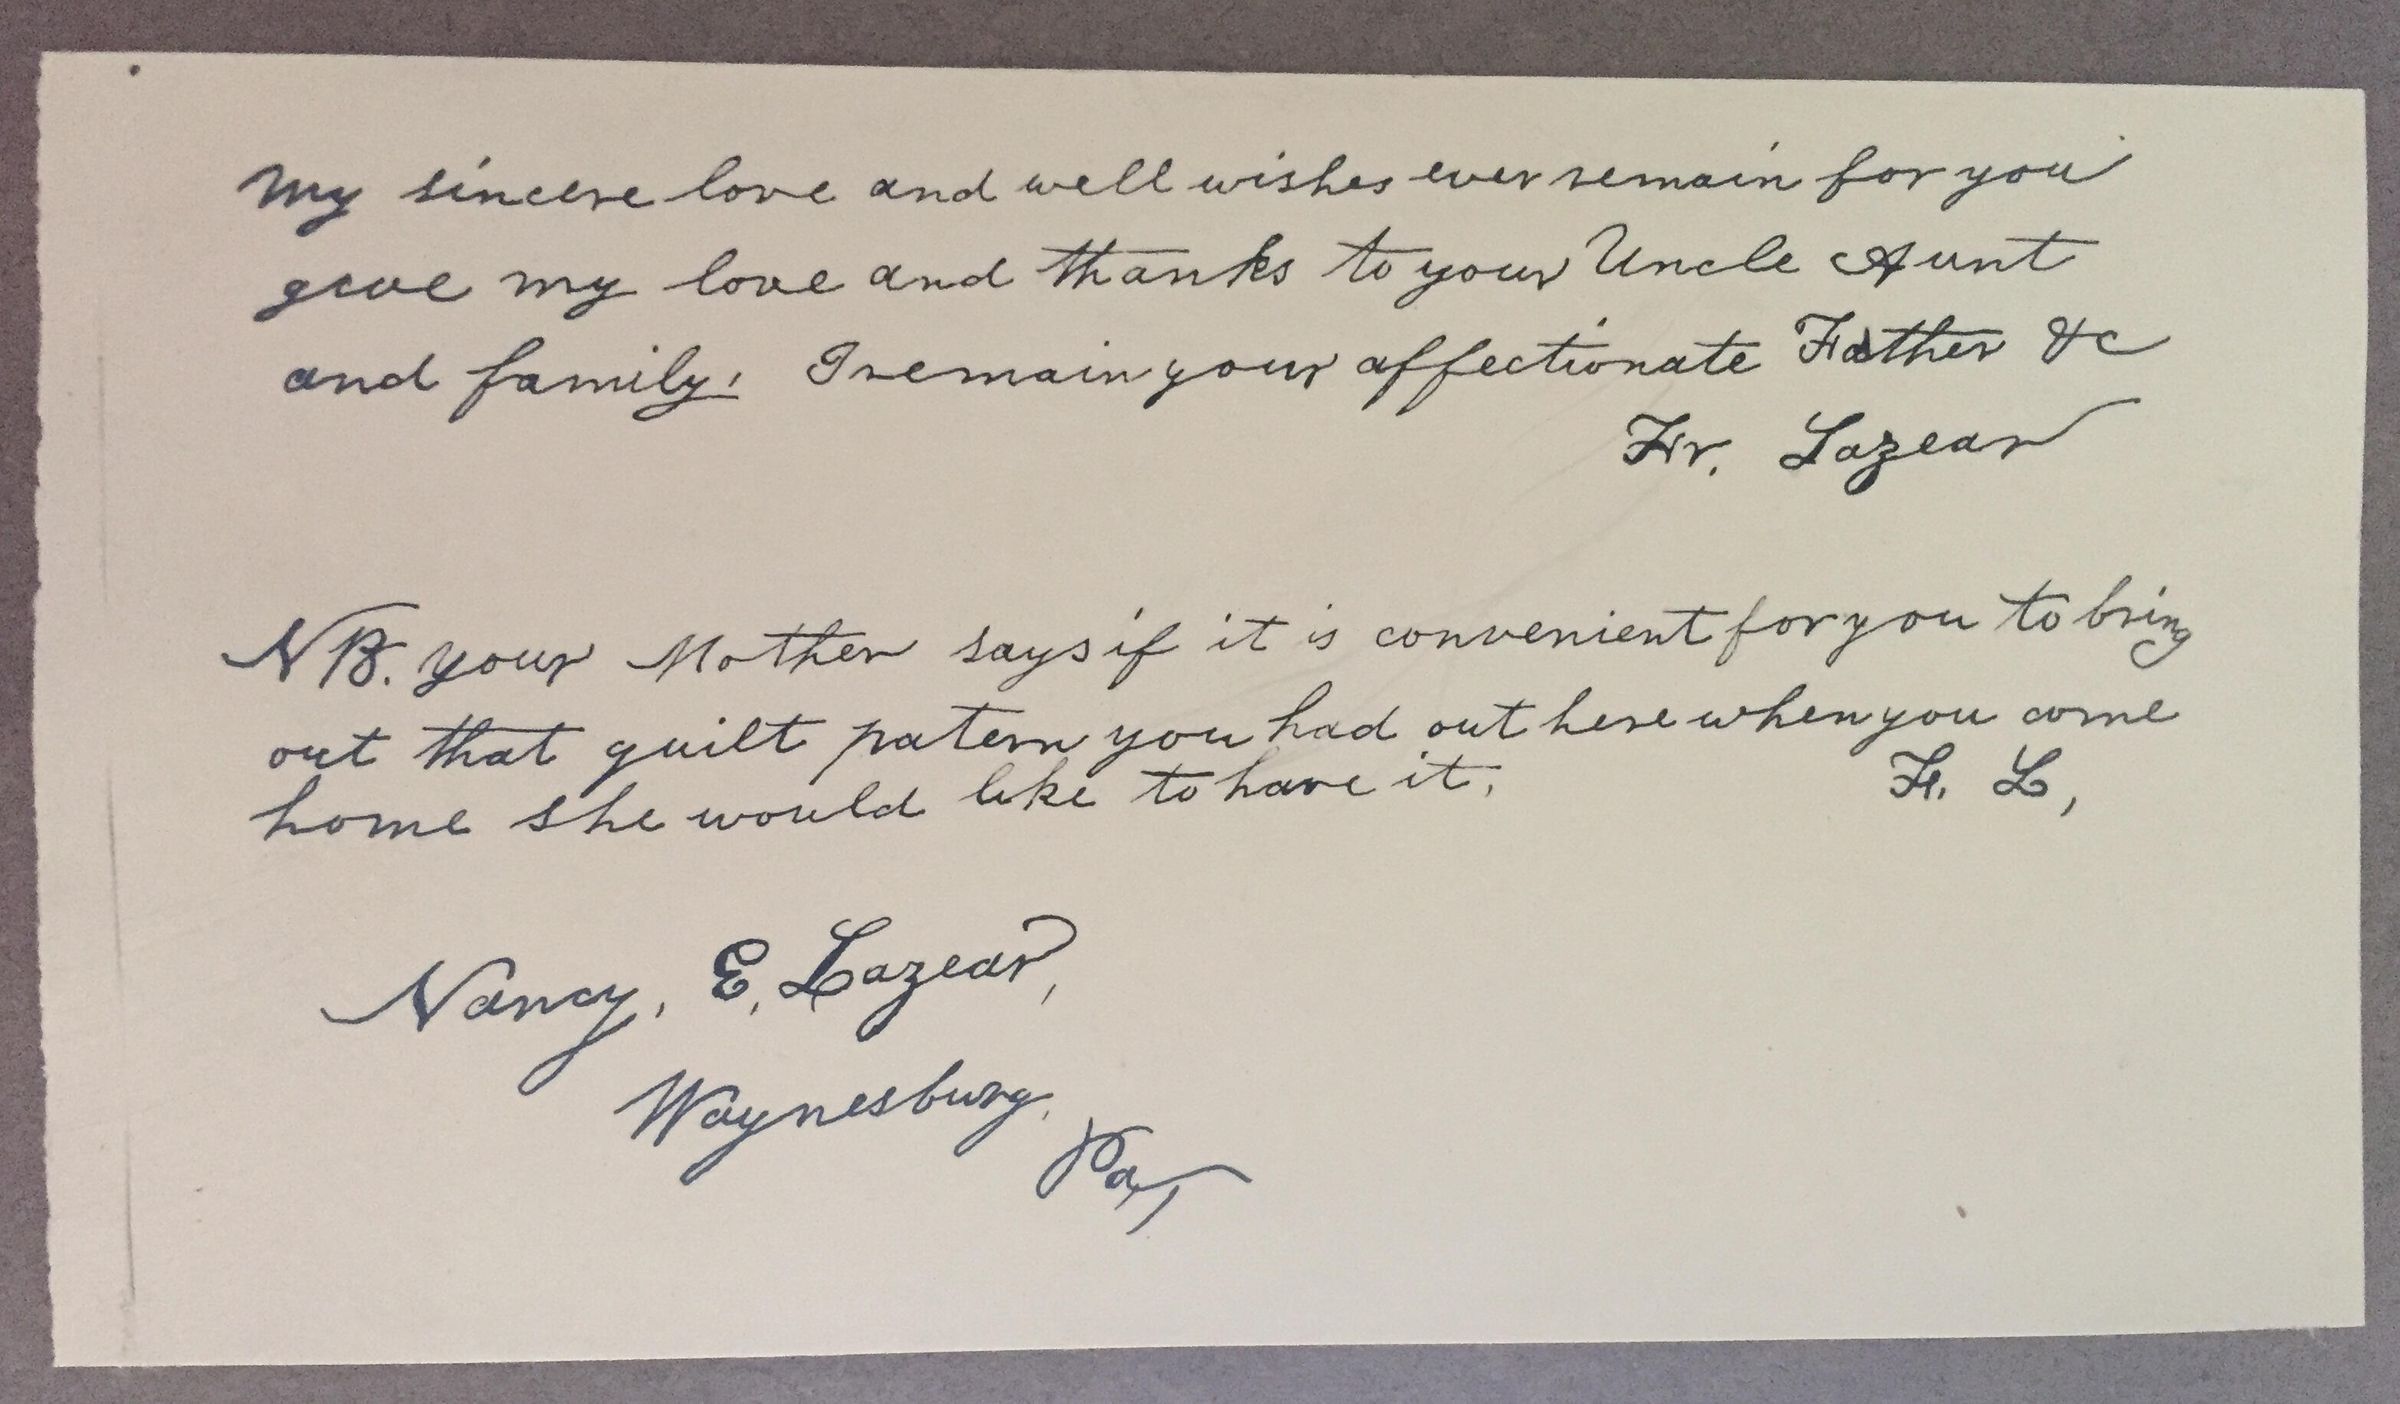 My sincere love and well wishes ever remain for you
give my love and thanks to your Uncle Aunt
and family. I remain your affectionate Father &c
Fr. Lazear
NB. your Mother says if it is convenient for you to bring
out that quilt patern you had out here when you come
home she would like to have it.
F. L,
Nancy, E, Lazear,
Waynesburg,
Pa,